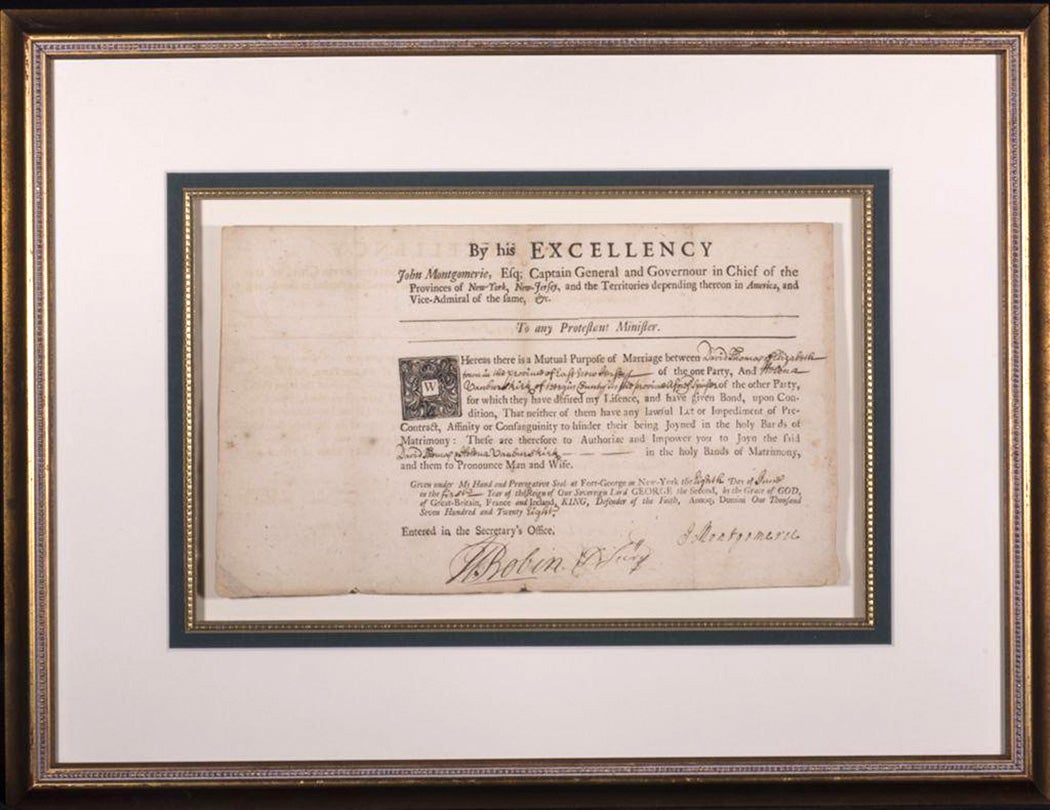 By his EXCELLENCY
John Montgomerie, Esq; Captain General and Governour in Chief of the
Provinces of New-York, New-Jersey, and the Territories depending thereon in America, and
Vice-Admiral of the same, &c.
To any Protestant Minister.
WHereas there is a Mutual Purpose of Marriage between David Thomas of Elizabeth
town in the Province of East New Jersey of the one Party, And Helena
Vanburskirk of County in the of the other Party,
for which they have desired my Lisence, and have given Bond, upon Con-
dition, That neither of them have any lawful Let or Impediment of Pre-
Contract, Affinity or Consanguinity to hinder their being Joyned in the holy Bands of
Matrimony: These are therefore to Authorize and Impower you to Joyn the said
David Thomas & Helena Vanburskirk — — — in the holy Bands of Matrimony,
and them to Pronounce Man and Wife.
Given under My Hand and Prerogative Seal at Fort-George in New-York the Eighth Day of June
in the first Year of the Reign of Our Sovereign Lord GEORGE the Second, by the Grace of GOD,
of Great-Britain, France and Ireland, KING, Defender of the Faith, Annoq; Domini One Thousand
Seven Hundred and Twenty Eight.
Entered in the Secretary's Office,
J Montgomerie
H Robin